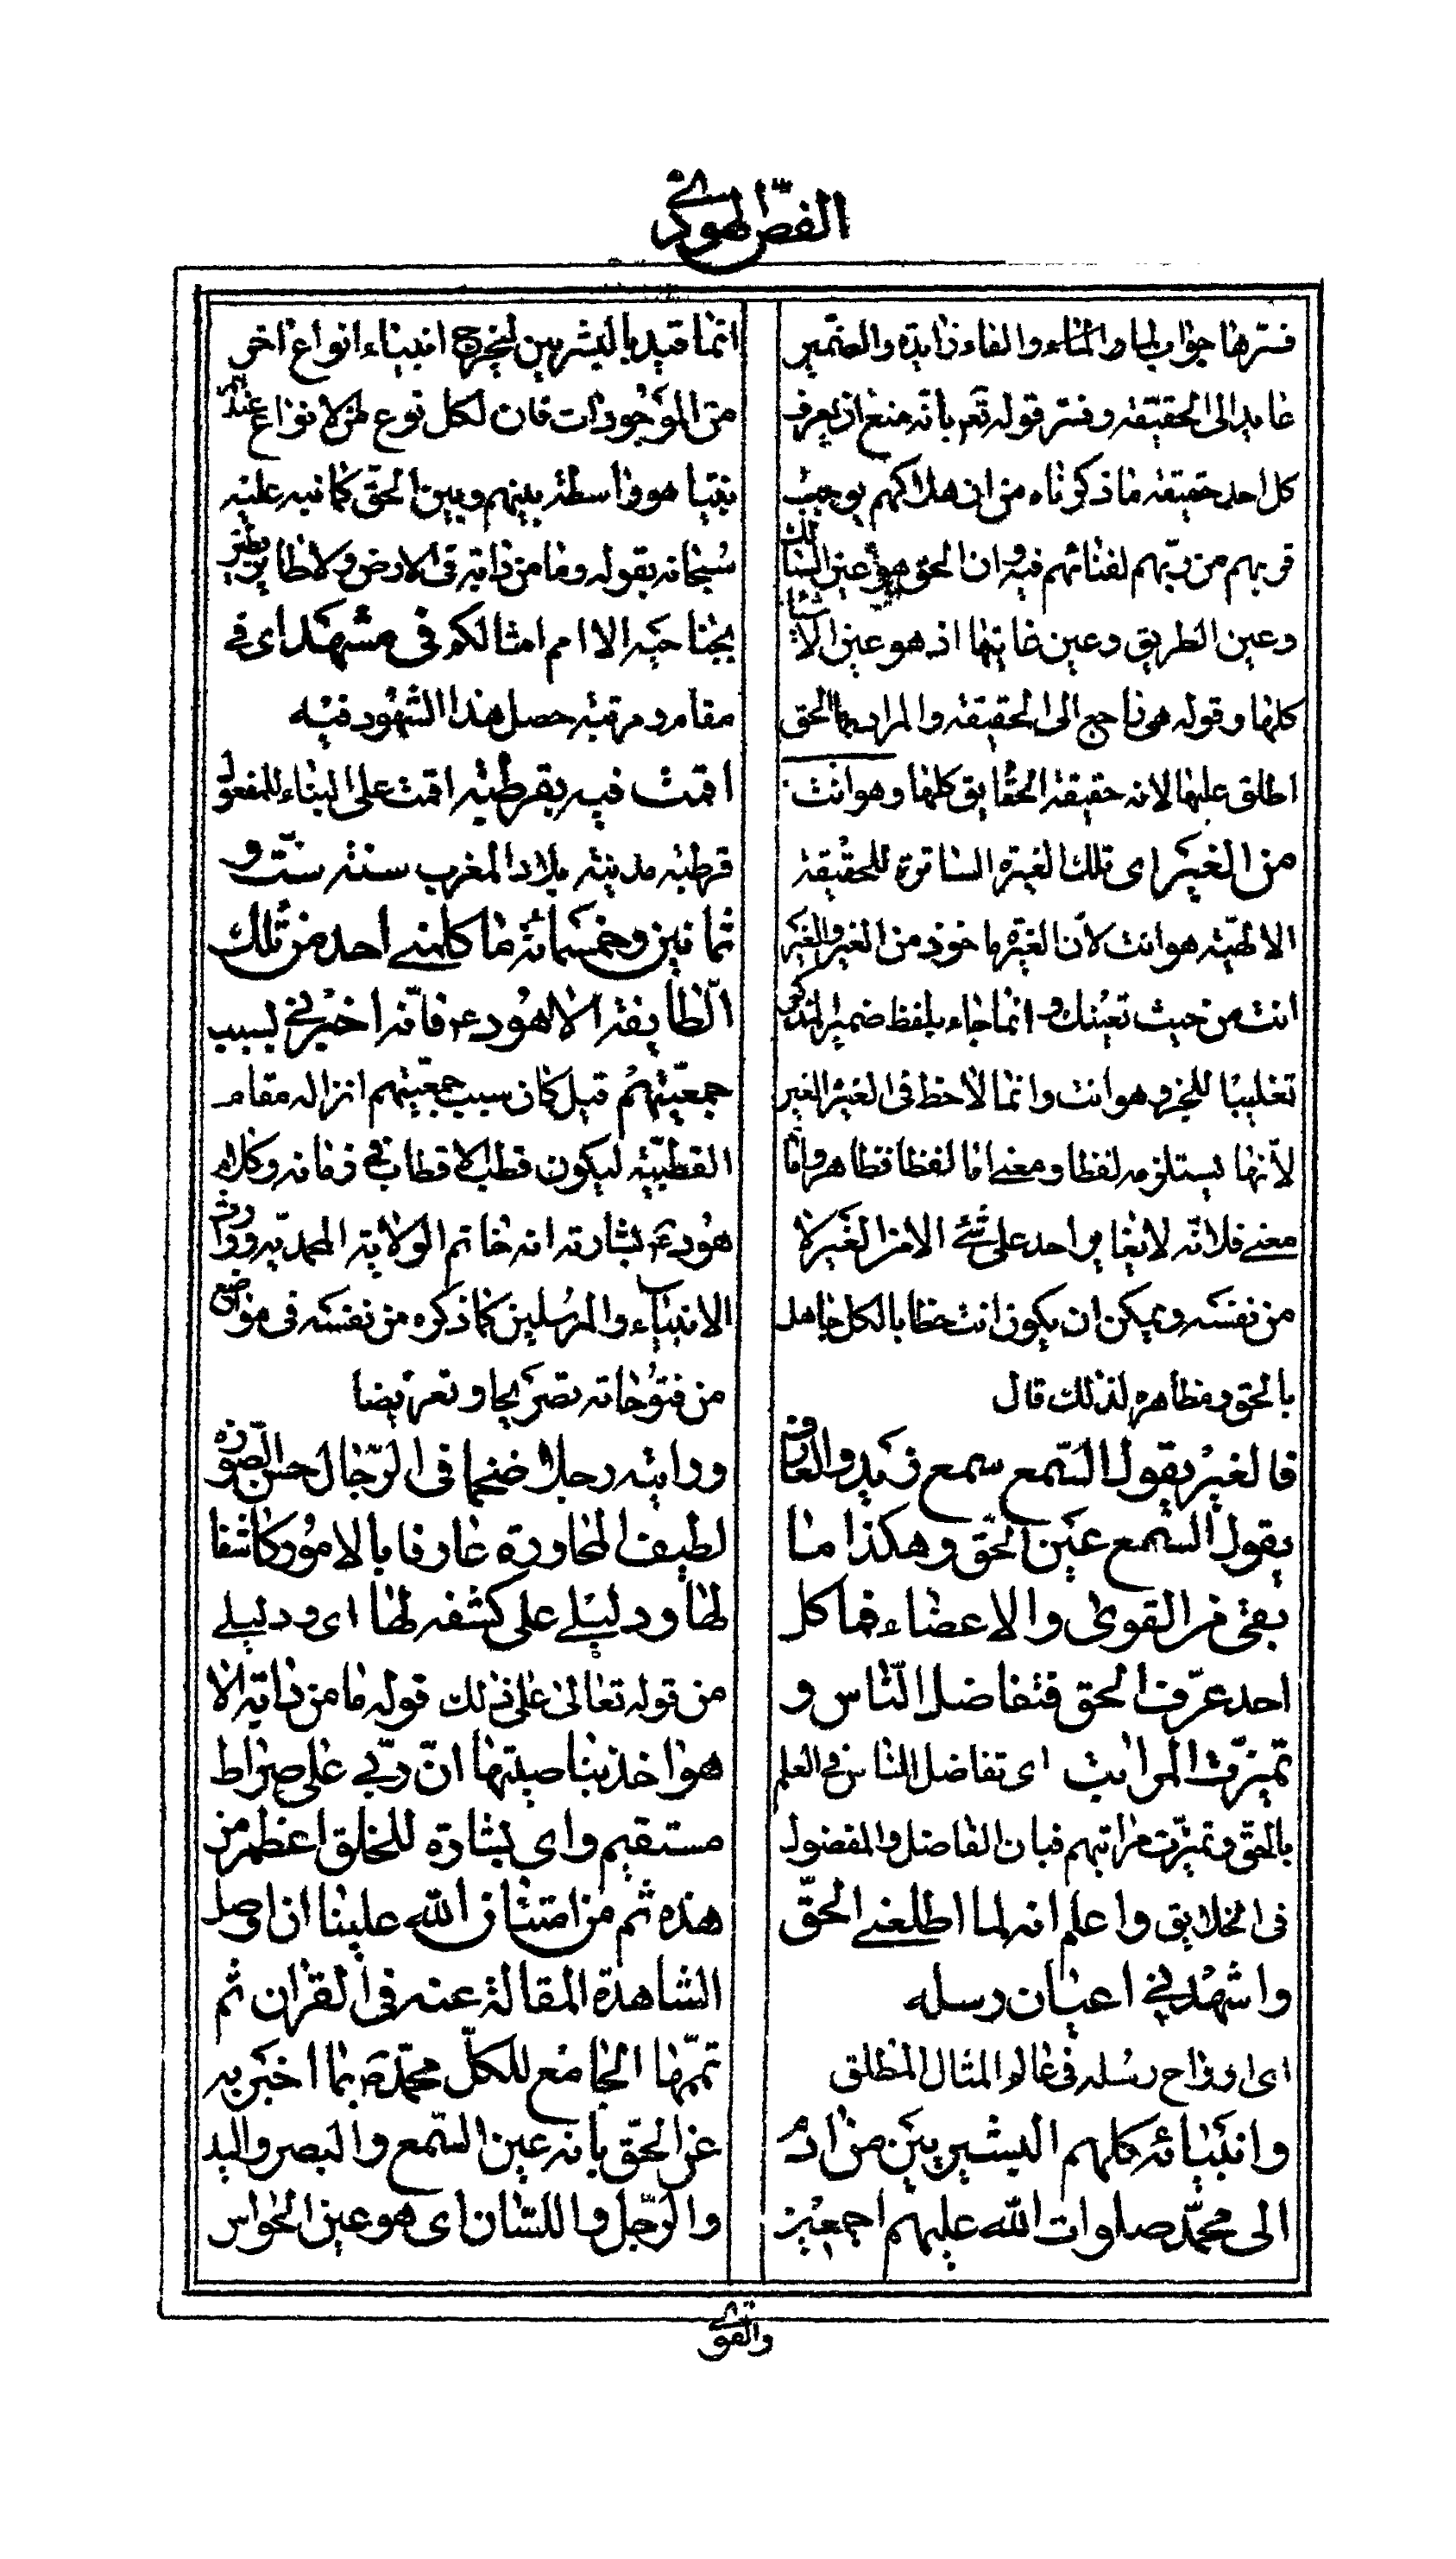 الفصّ الهودي
فسّرها جواب لما والفاء زايدة والضمير
عايد الى الحقيقة وفسّر قوله تعم بانّه منع ان يعرف
كل احد حقيقة ما ذكرناه من ان هلاكهم يوجب
قربهم من ربّهم لفنائهم فيه وان الحق هو عين السالك
وعين الطريق وعين غايتها اذ هو عين الاشياء
كلها وقوله هى راجع الى الحقيقة والمراد بها الحق
اطلق عليها لانه حقيقة الحقايق كلها وهو انت
من الغير اى تلك الغيرة الساترة للحقيقة
الالهيّة هو انت لانّ الغيرة ماخوذ من الغير والغير
انت من حيث تعينك وانما جاء بلفظ ضمير المذكر
تغليبا للخبر وهو انت وانما لاحظ فى الغيرة الغير
لانّها يستلزمه لفظا ومعنى اما لفظا فظاهر واما
معنى فلانّه لا يغاير احد على شئ الا من الغير لا
من نفسه ويمكن ان يكون انت خطابا لكل جاهل
بالحق ومظاهره لذلك قال
فالغير يقول السّمع سمع زيد والعارف
يقول السّمع عين الحق وهكذا ما
بقى من القوى والاعضاء فما كل
احد عرّف الحق فتفاضل النّاس و
تميزت المراتب اى تفاضل الناس فى العلم
بالحق وتميّزت مراتبهم فبان الفاضل والمفضول
فى الخلايق واعلم انه لما اطلعنى الحقّ
واشهدني اعيان رسله
اى ارواح رسله فى عالم المثال المطلق
وانبيائه كلهم البشريين من ادم
الى محمّد صلوات الله عليهم اجمعين
انما قيد بالبشريين ليخرج انبياء انواع اخر
من الموجودات فان لكل نوع من الانواع عندهم
نبيا هو واسطة بينهم وبين الحق كما نبه عليه
سبحانه بقوله وما من دابة فى الارض ولا طاير يطير
بجناحيه الا امم امثالكم فى مشهد اى فى
مقام ومرتبة حصل هذا الشهود فيه
اقمت فيه بقرطبة اقمت على البناء للمفعول
قرطبة مدينة بلاد المغرب سنة ستّ و
ثمانين وخمسمائة ما كلمنى احد من تلك
الطايفة الا هود ع فانّه اخبرني بسبب
جمعيّتهم قيل كان سبب جمعيّتهم انزاله مقام
القطبيّة ليكون قطب الاقطاب فى زمانه وكلام
هود ع بشارته انه خاتم الولاية المحمديّه ووارث
الانبياء والمرسلين كما ذكره من نفسه فى مواضع
من فتوحاته تصريحا وتعريضا
ورايته رجلا ضخما فى الرّجال حسن الصّورة
لطيف المحاورة عارفا بالامور كاشفا
لها ودليلى على كشفه لها اى ودليلى
من قوله تعالى على ذلك قوله ما من دابة الا
هو اخذ بناصيتها انّ ربّي على صراط
مستقيم واى بشارة للخلق اعظم من
هذه ثم من امتنان الله علينا ان اوصل
الشاهدة المقالة عنه فى القران ثم
تممّها الجامع للكلّ محمّد ص بما اخبر به
عن الحق بانه عين السّمع والبصر واليد
والرّجل واللسّان اى هو عين الحواس
والقوى